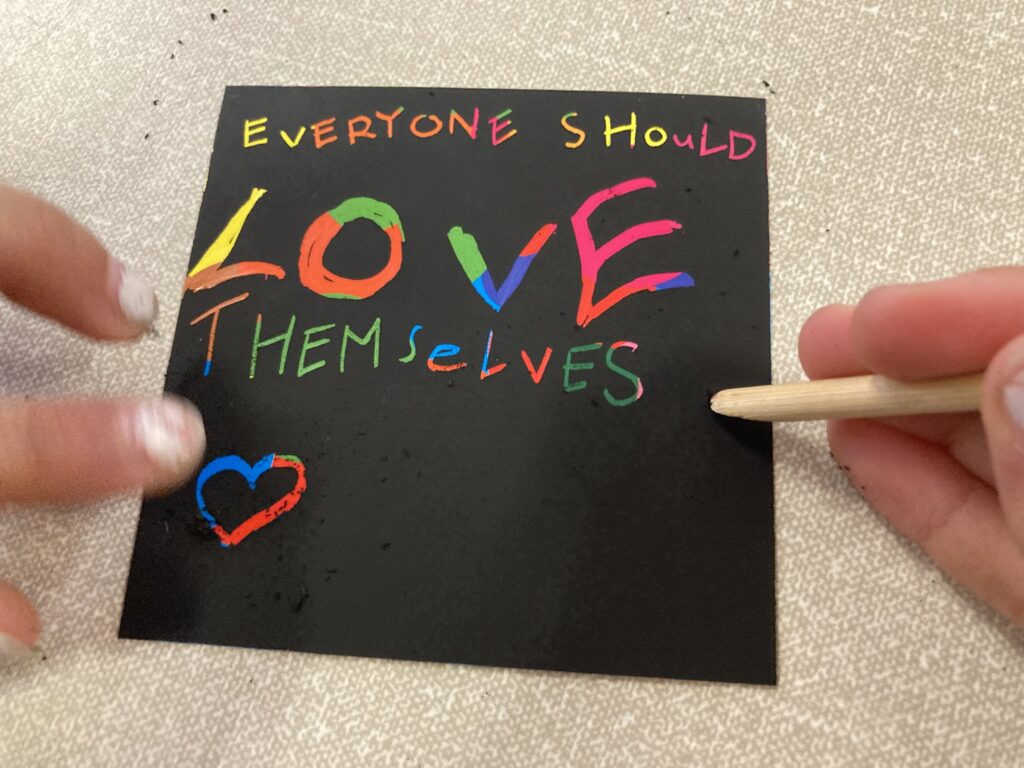 EVERYONE SHOULD
LOVE
THEMSELVES